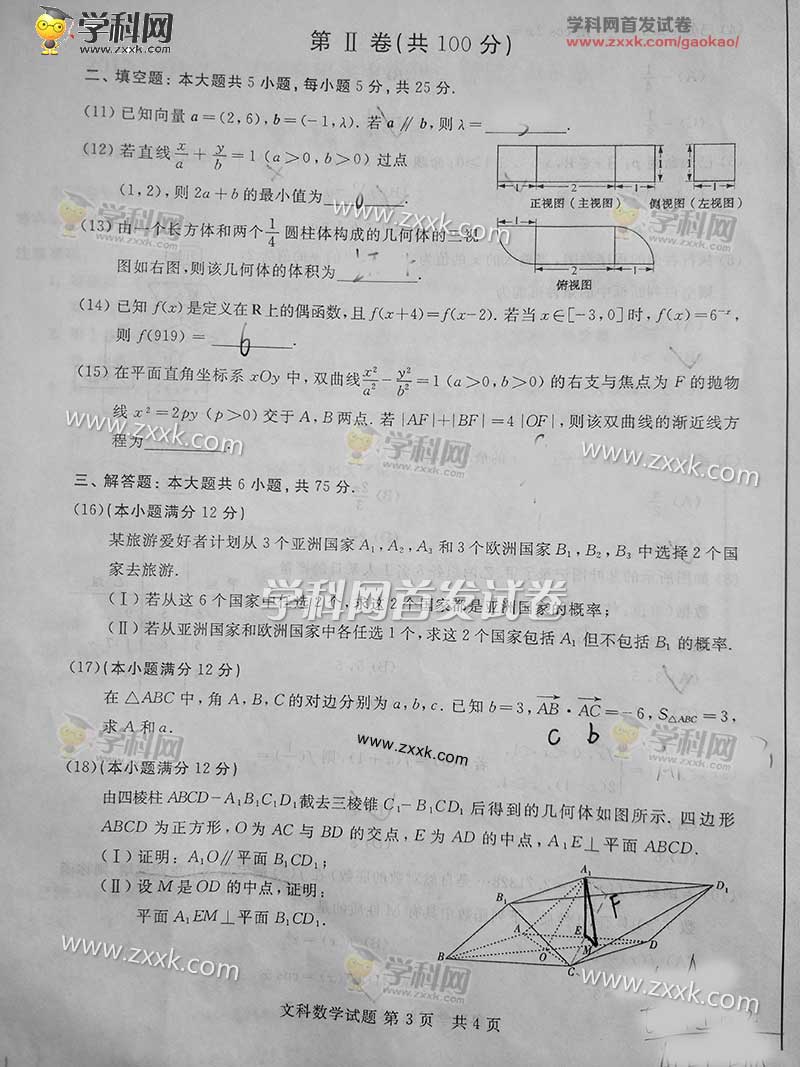 学科网
www.zxxk.com
学科网首发试卷
www.zxxk.com/gaokao/
第 Ⅱ 卷(共 100 分)
二、填空题：本大题共 5 小题，每小题 5 分，共 25 分.
(11) 已知向量 a=(2,6), b=(-1,λ). 若 a∥b, 则 λ=________.
(12) 若直线 x/a + y/b = 1 (a>0, b>0) 过点
(1,2), 则 2a+b 的最小值为________.
1 2 1 1 1
正视图(主视图) 侧视图(左视图)
(13) 由一个长方体和两个 1/4 圆柱体构成的几何体的三视
图如右图, 则该几何体的体积为________.
1 2 1
俯视图
(14) 已知 f(x) 是定义在 R 上的偶函数, 且 f(x+4)=f(x-2). 若当 x∈[-3,0] 时, f(x)=6⁻ˣ,
则 f(919) = ____6____.
(15) 在平面直角坐标系 xOy 中, 双曲线 x²/a² - y²/b² = 1 (a>0, b>0) 的右支与焦点为 F 的抛物
线 x²=2py (p>0) 交于 A, B 两点. 若 |AF|+|BF|=4|OF|, 则该双曲线的渐近线方
程为________.
三、解答题：本大题共 6 小题, 共 75 分.
(16)(本小题满分 12 分)
某旅游爱好者计划从 3 个亚洲国家 A₁, A₂, A₃ 和 3 个欧洲国家 B₁, B₂, B₃ 中选择 2 个国
家去旅游.
学科网首发试卷
(Ⅰ) 若从这 6 个国家中任选 2 个, 求这 2 个国家都是亚洲国家的概率;
(Ⅱ) 若从亚洲国家和欧洲国家中各任选 1 个, 求这 2 个国家包括 A₁ 但不包括 B₁ 的概率.
(17)(本小题满分 12 分)
在 △ABC 中, 角 A, B, C 的对边分别为 a, b, c. 已知 b=3, AB·AC=-6, S△ABC=3,
求 A 和 a.
c b
www.zxxk.com
(18)(本小题满分 12 分)
由四棱柱 ABCD-A₁B₁C₁D₁ 截去三棱锥 C₁-B₁CD₁ 后得到的几何体如图所示. 四边形
ABCD 为正方形, O 为 AC 与 BD 的交点, E 为 AD 的中点, A₁E⊥平面 ABCD.
(Ⅰ) 证明: A₁O∥平面 B₁CD₁;
(Ⅱ) 设 M 是 OD 的中点, 证明:
平面 A₁EM⊥平面 B₁CD₁.
A₁ D₁ B₁ F
A E D
B O M
C
文科数学试题 第 3 页 共 4 页